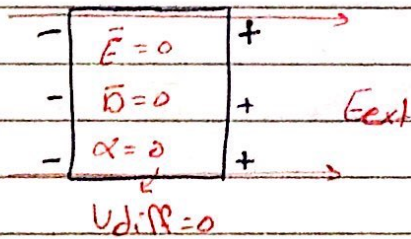 - Ē = 0 +
- D̄ = 0 + Eext
- α = 0 +
Udiff = 0